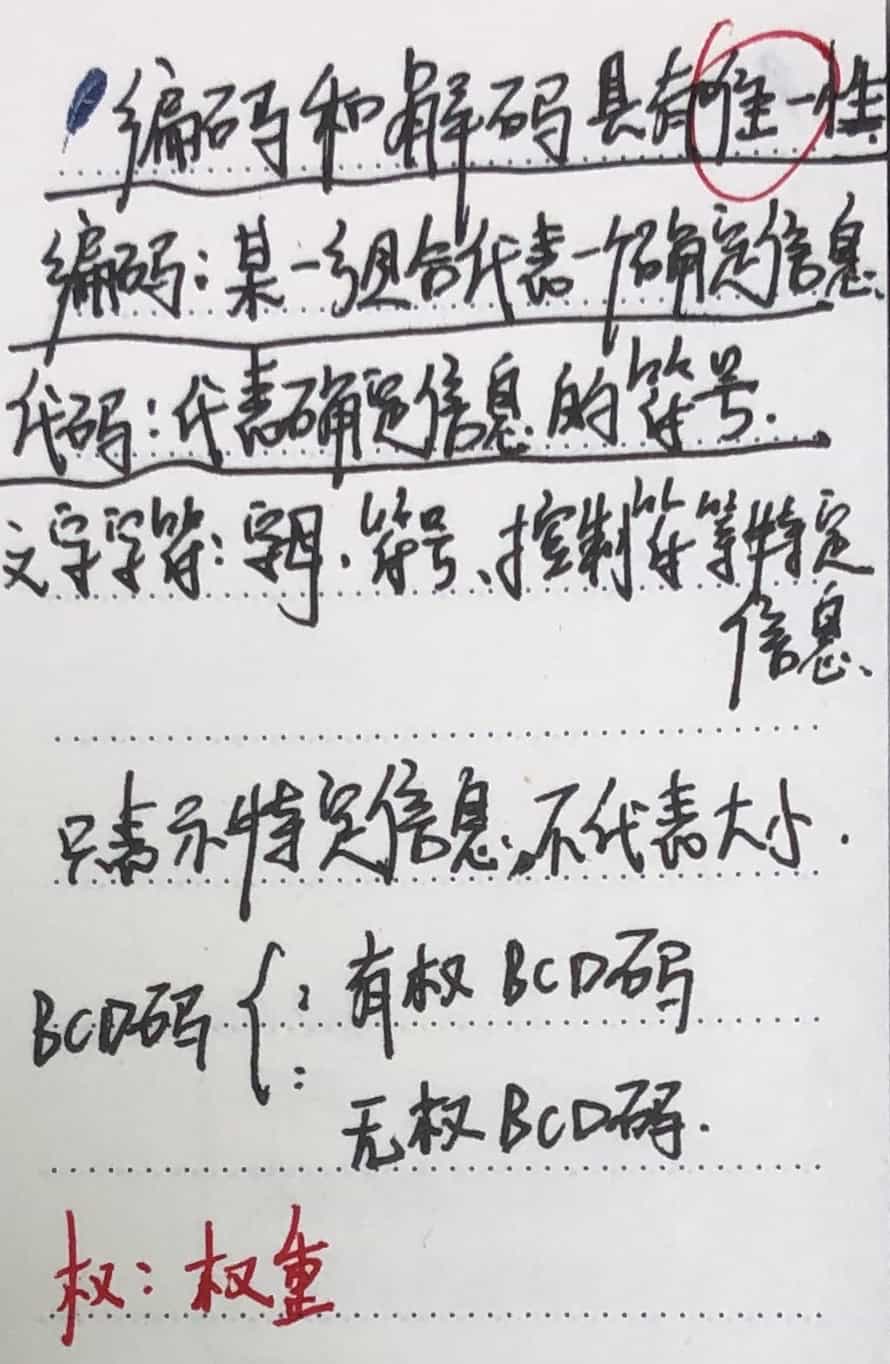 编码和解码具有唯一性
编码:某一组合代表一个确定信息.
代码:代表确定信息的符号.
文字字符:字母.符号、控制符等特定
信息、
只表示特定信息,不代表大小.
BCD码{: 有权BCD码
: 无权BCD码.
权:权重